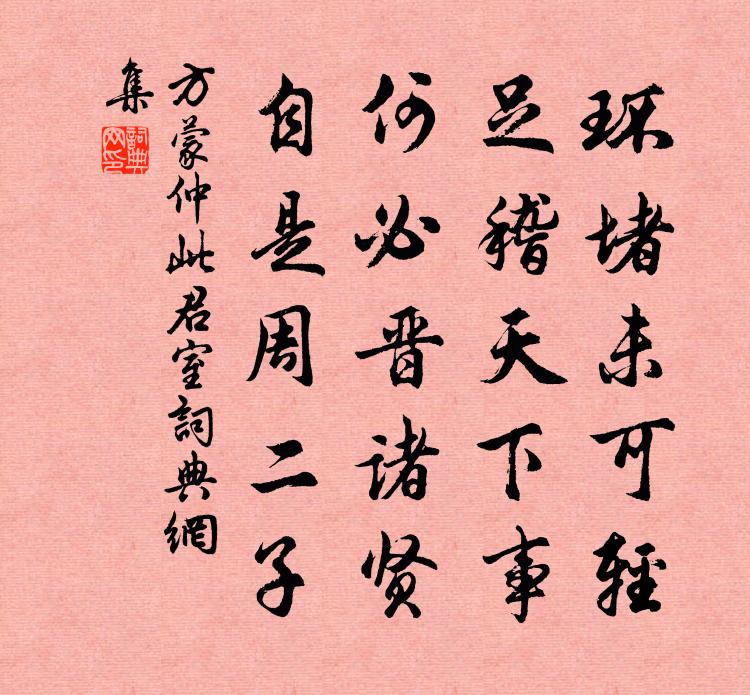 环堵未可轻
足稽天下事
何必晋诸贤
自是周二子
方蒙仲此君室詞典網
集
詞典
网印